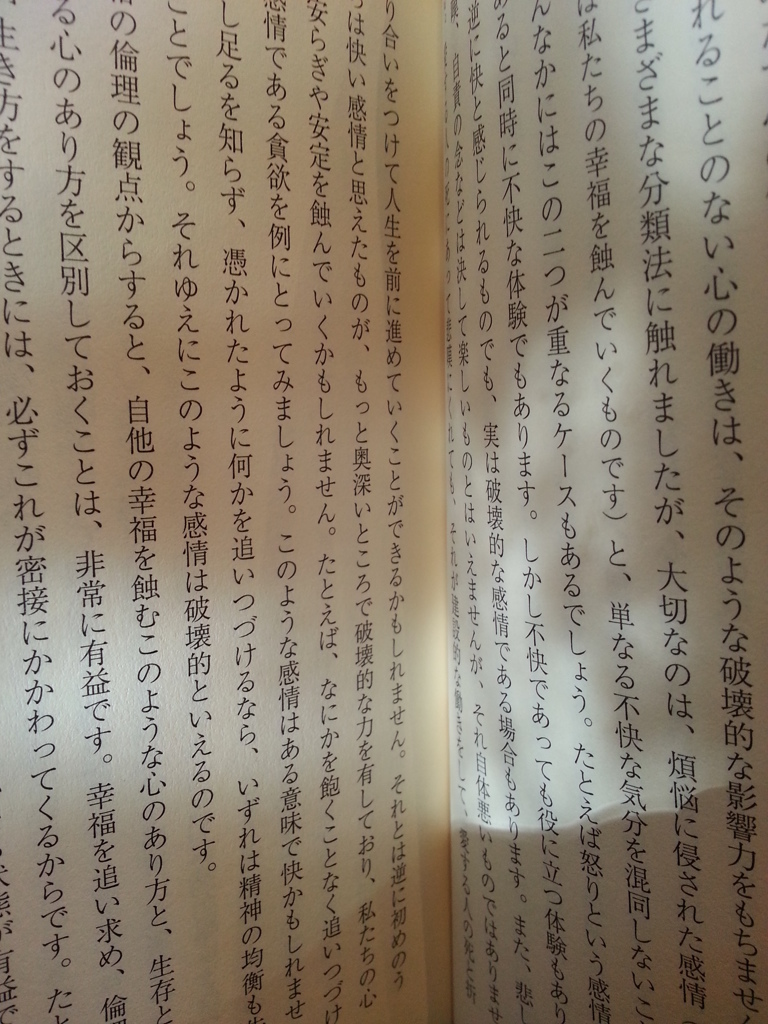 れることのない心の働きは、そのような破壊的な影響力をもちませ
さまざまな分類法に触れましたが、大切なのは、煩悩に侵された感情
は私たちの幸福を蝕んでいくものです)と、単なる不快な気分を混同しないこ
んなかにはこの二つが重なるケースもあるでしょう。たとえば怒りという感情
あると同時に不快な体験でもあります。しかし不快であっても役に立つ体験もあり
逆に快と感じられるものでも、実は破壊的な感情である場合もあります。また、悲し
自責の念などは決して楽しいものとはいえませんが、それ自体悪いものではありませ
にあって悲嘆にくれても、それが建設的な働きをして、愛する人の死と折
り合いをつけて人生を前に進めていくことができるかもしれません。それとは逆に初めのう
ちは快い感情と思えたものが、もっと奥深いところで破壊的な力を有しており、私たちの心
安らぎや安定を蝕んでいくかもしれません。たとえば、なにかを飽くことなく追いつづけ
感情である貪欲を例にとってみましょう。このような感情はある意味で快かもしれませ
し足るを知らず、憑かれたように何かを追いつづけるなら、いずれは精神の均衡も
ことでしょう。それゆえにこのような感情は破壊的といえるのです。
の倫理の観点からすると、自他の幸福を蝕むこのような心のあり方と、生存と
る心のあり方を区別しておくことは、非常に有益です。幸福を追い求め、倫
生き方をするときには、必ずこれが密接にかかわってくるからです。たと
状態が有益で